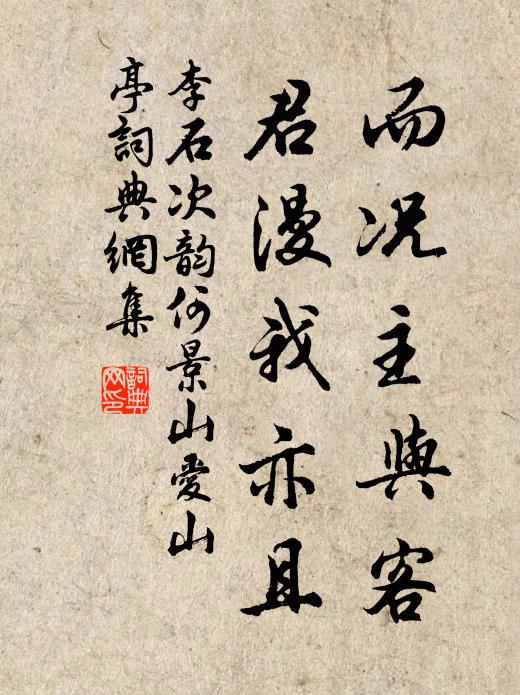 而况主與客
君漫我亦且
李石次韵何景山愛山
亭詞典網集
詞典
网印